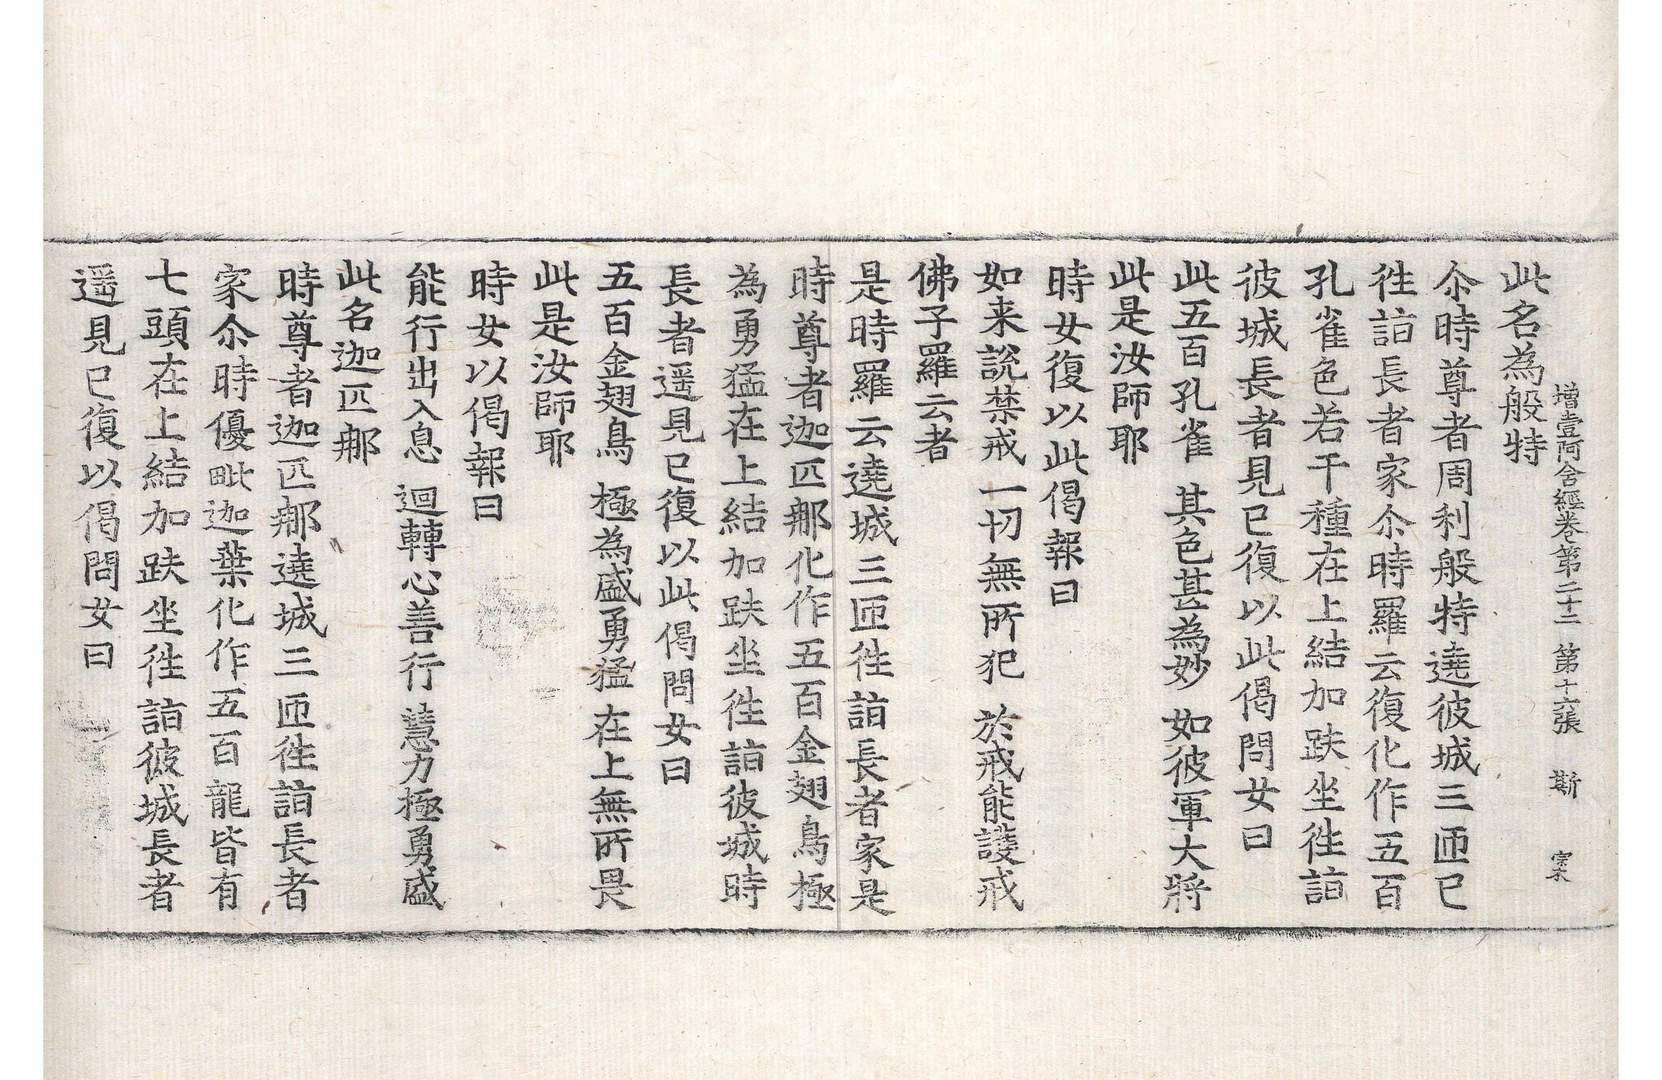 增壹阿含經卷第二十二　第十六張　斯　宗
此名為般特
尒時尊者周利般特遶彼城三匝已
徃詣長者家尒時羅云復化作五百
孔雀色若干種在上結加趺坐徃詣
彼城長者見已復以此偈問女曰
此五百孔雀　其色甚為妙　如彼軍大將
此是汝師耶
時女復以此偈報曰
如来說禁戒　一切無所犯　於戒能護戒
佛子羅云者
是時羅云遶城三匝徃詣長者家是
時尊者迦匹那化作五百金翅鳥極
為勇猛在上結加趺坐徃詣彼城時
長者遥見已復以此偈問女曰
五百金翅鳥　極為盛勇猛　在上無所畏
此是汝師耶
時女以偈報曰
能行出入息　迴轉心善行　慧力極勇盛
此名迦匹那
時尊者迦匹那遶城三匝徃詣長者
家尒時優毗迦葉化作五百龍皆有
七頭在上結加趺坐徃詣彼城長者
遥見已復以偈問女曰